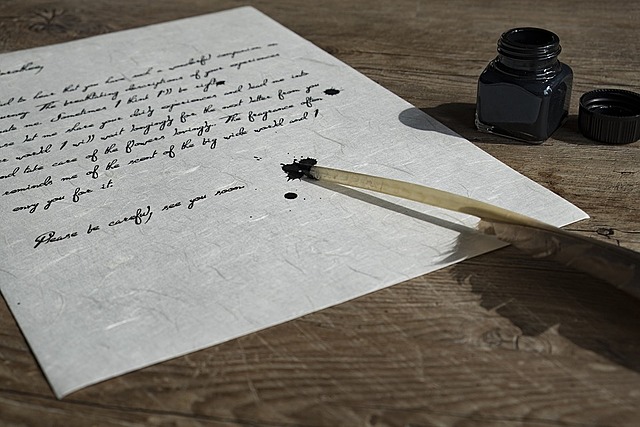 to hear that you have such a wonderful companion on
The breathtaking descriptions of your experiences
Sometimes I think I'll be right
let me share your daily experiences and lead me into
world. I will wait longingly for the next letter from you
and take care of the flowers lovingly. The fragrance often
reminds me of the scent of the big wide world and I
envy you for it.
Please be careful, see you soon